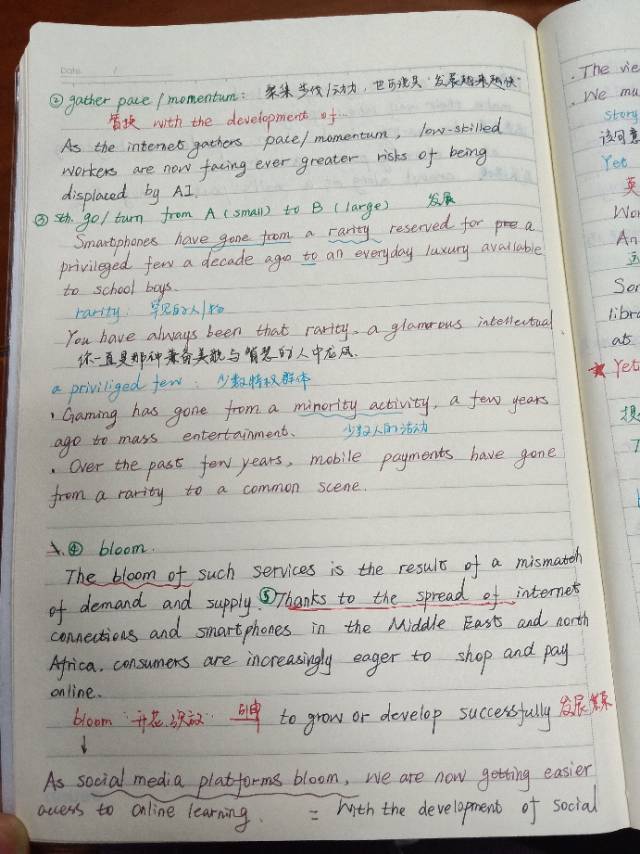 Date
② gather pace / momentum: 聚集步伐/动力, 也可说是"发展越来越快"
替换 with the development of...
As the internet gathers pace/momentum, low-skilled
workers are now facing ever greater risks of being
displaced by AI.
③ sth. go/turn from A (small) to B (large) 发展
Smartphones have gone from a rarity reserved for a
privileged few a decade ago to an everyday luxury available
to school boys.
rarity: 罕见的人/物
You have always been that rarity, a glamorous intellectual.
你一直是那种兼备美貌与智慧的人中龙凤.
a priviliged few: 少数特权群体
· Gaming has gone from a minority activity, a few years
ago to mass entertainment. 少数人的活动
· Over the past few years, mobile payments have gone
from a rarity to a common scene.
④ bloom.
The bloom of such services is the result of a mismatch
of demand and supply. ⑤ Thanks to the spread of internet
connections and smartphones in the Middle East and north
Africa, consumers are increasingly eager to shop and pay
online.
bloom "开花, 绽放" 引申 to grow or develop successfully 发展繁荣
↓
As social media platforms bloom, we are now getting easier
access to online learning. = With the development of social
· The vie
· We mu
story
该同意
Yet
英
Wor
An
Sor
libra
as
★ Yet